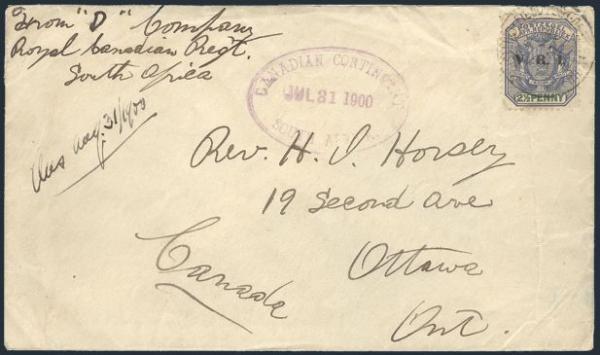 From "D" Company
Royal Canadian Regt.
South Africa
Ans Aug. 31/1900
CANADIAN CONTINGENT
JUL 31 1900
SOUTH AFRICA
V.R.I.
2½ PENNY
Rev. H. I. Horsey
19 Second Ave
Ottawa
Canada
Ont.